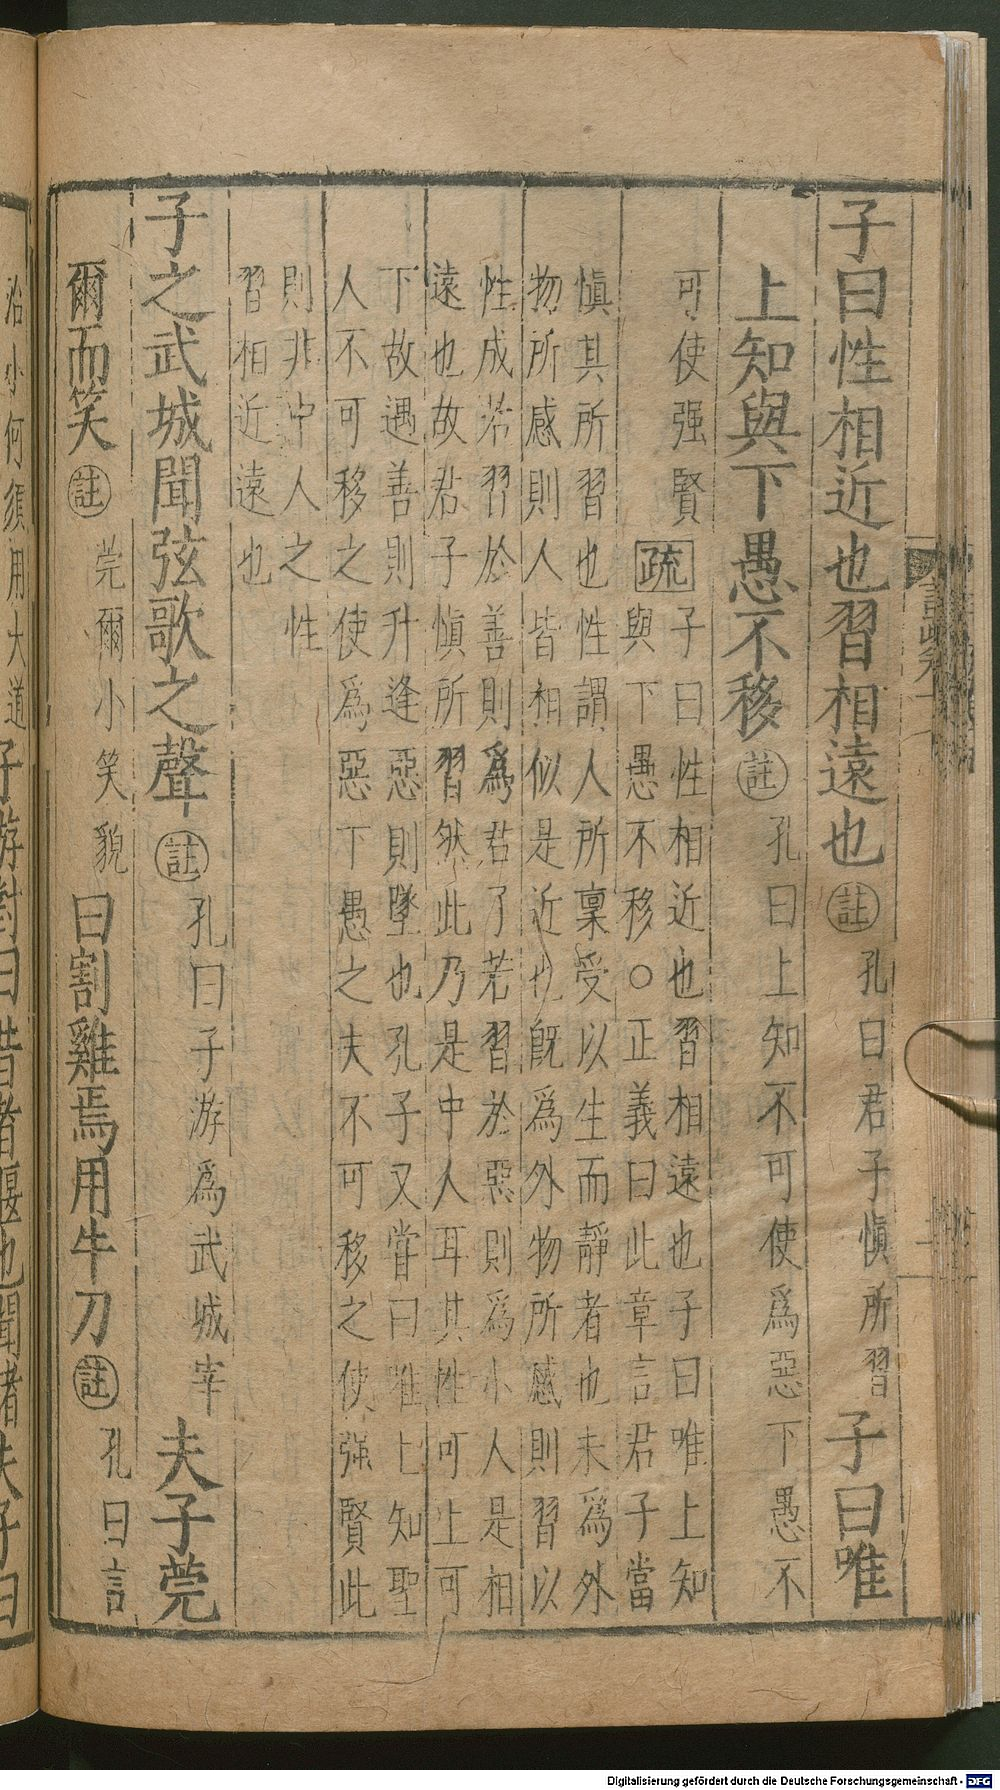 子曰性相近也習相遠也註孔曰君子慎所習子曰唯
上知與下愚不移註孔曰上知不可使爲惡下愚不
可使强賢疏子曰性相近也習相遠也子曰唯上知
與下愚不移○正義曰此章言君子當
慎其所習也性謂人所稟受以生而靜者也未爲外
物所感則人皆相似是近也旣爲外物所感則習以
性成若習於善則爲君子若習於惡則爲小人是相
遠也故君子慎所習然此乃是中人耳其性可上可
下故遇善則升逢惡則墜也孔子又嘗曰唯上知聖
人不可移之使爲惡下愚之夫不可移之使强賢此
則非中人之性
習相近遠也
子之武城聞弦歌之聲註孔曰子游爲武城宰夫子莞
爾而笑註莞爾小笑貌曰割雞焉用牛刀註孔曰言
治小何須用大道子游對曰昔者偃也聞諸夫子曰
Digitalisierung gefördert durch die Deutsche Forschungsgemeinschaft - DFG